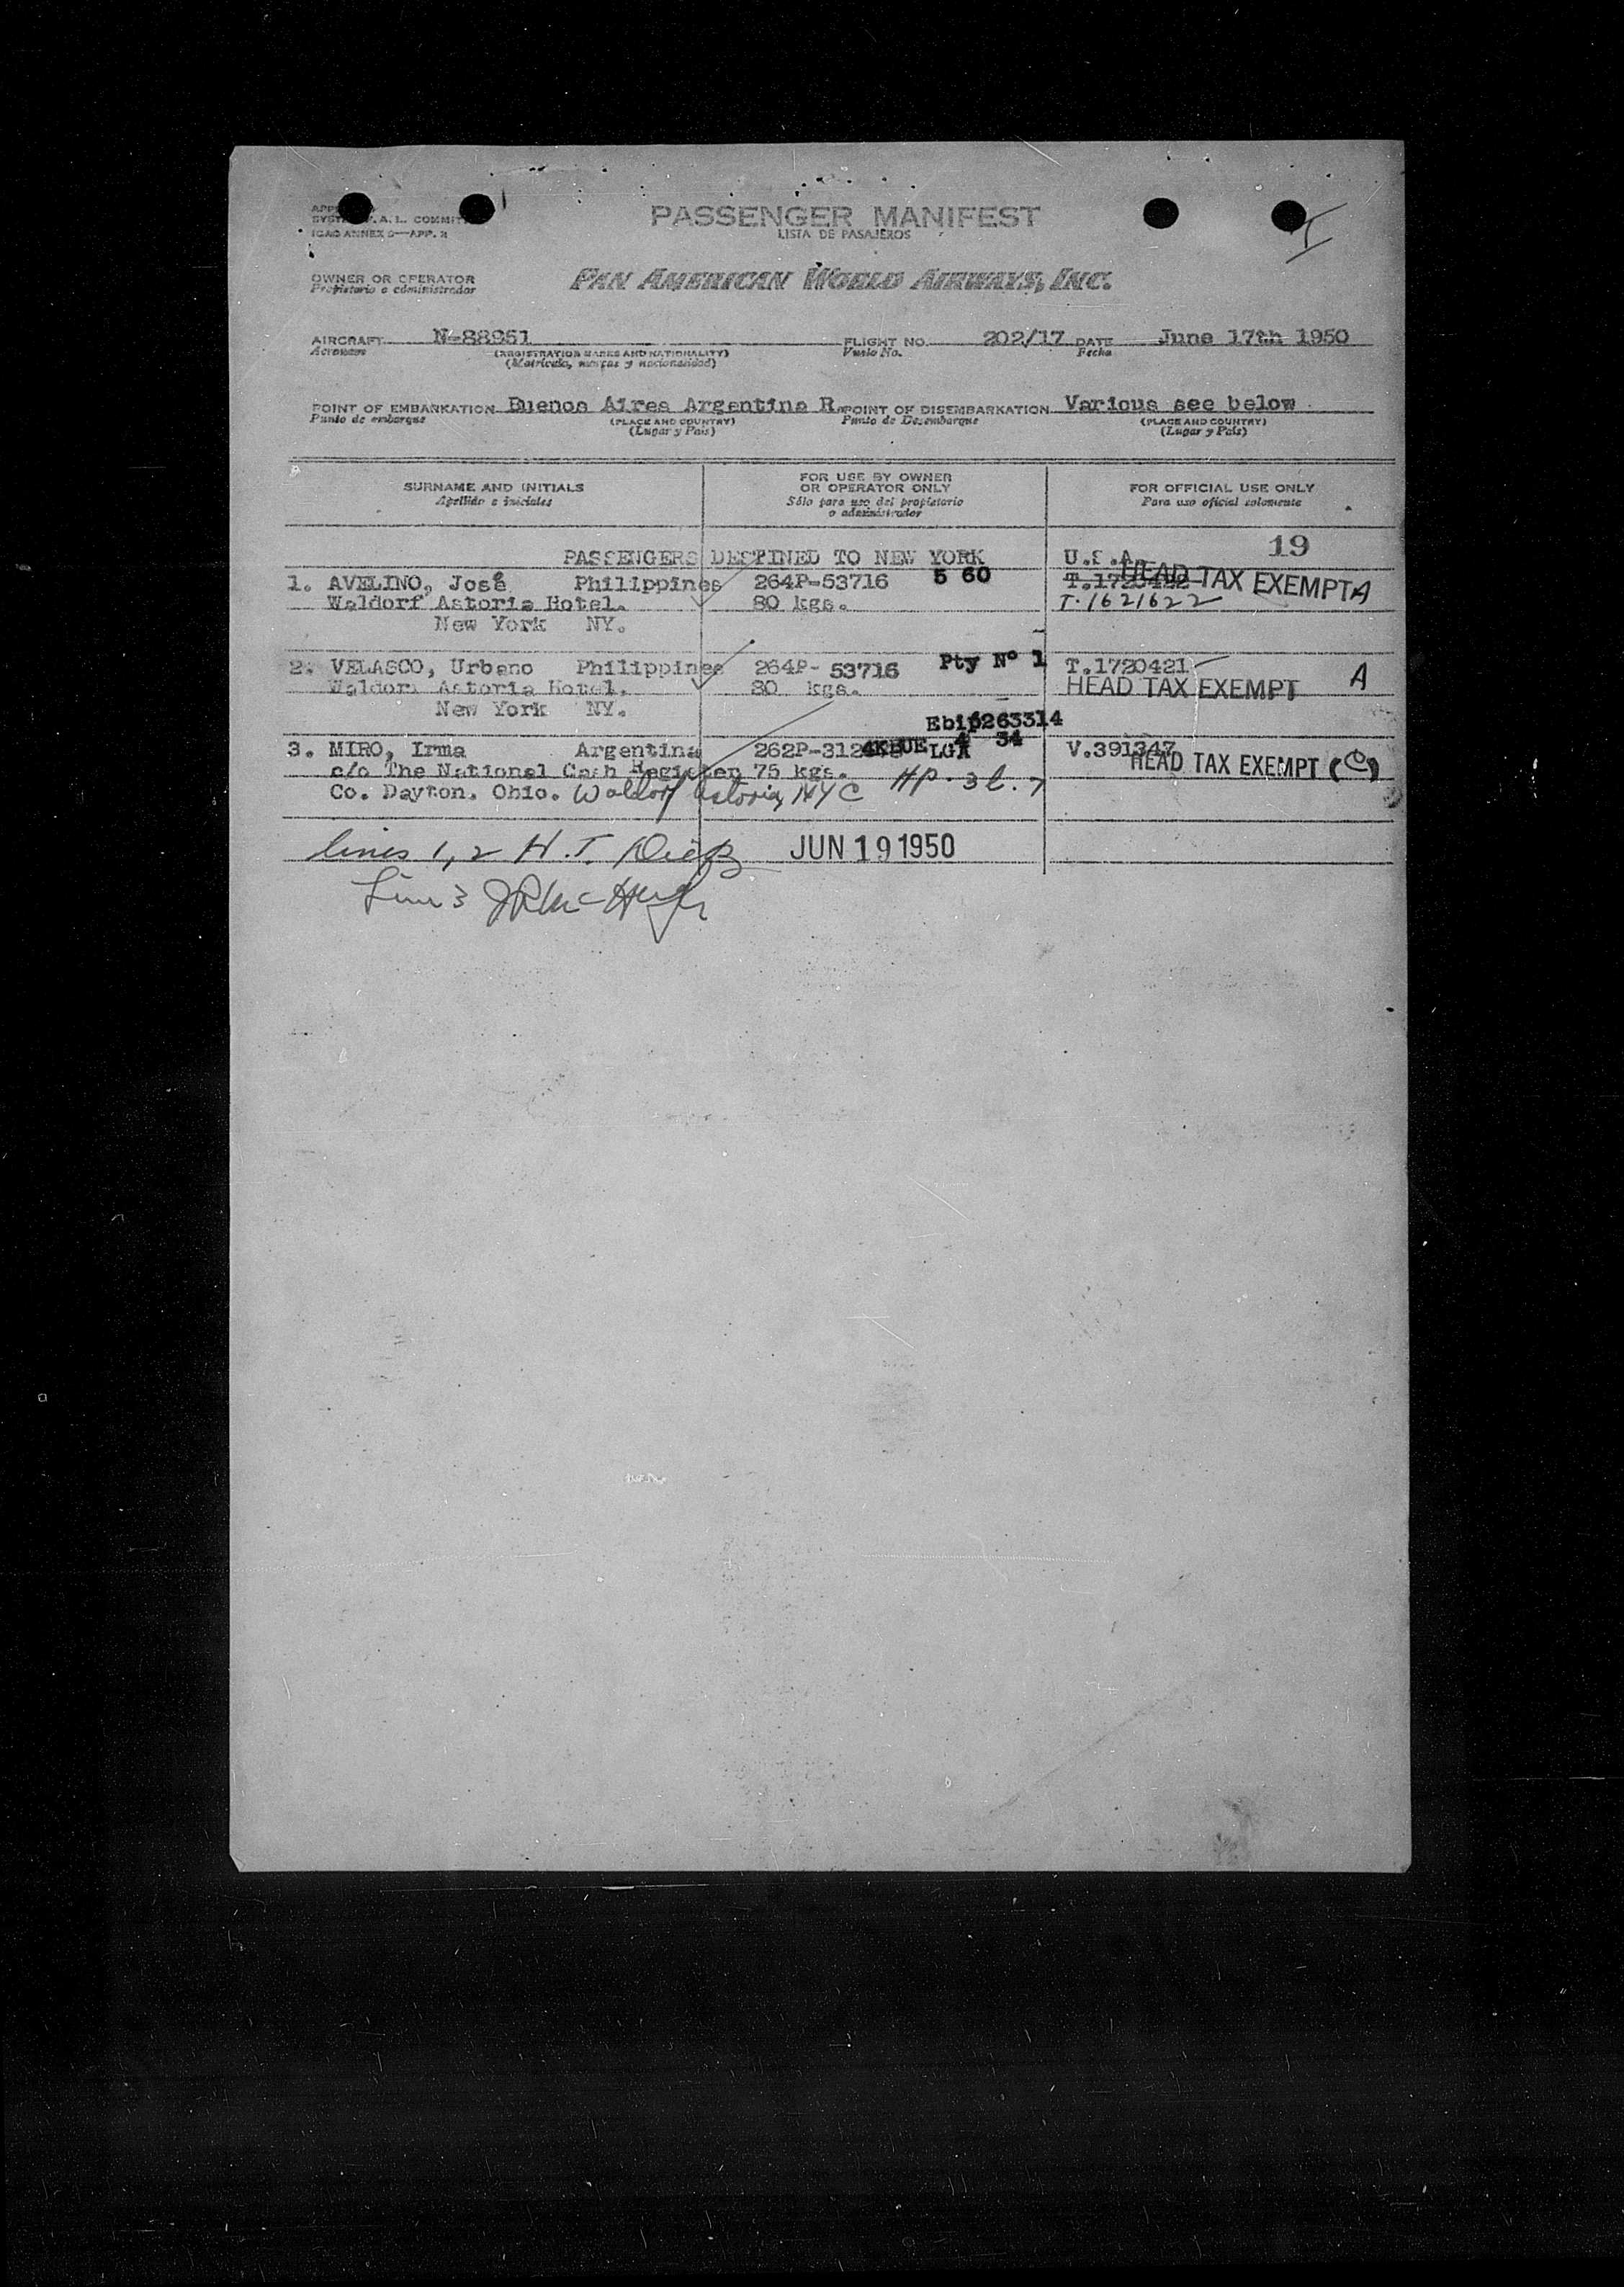 PASSENGER MANIFEST
LISTA DE PASAJEROS
SYST A.L. COMMIT
ICAO ANNEX 9—APP. 2
OWNER OR OPERATOR
Propietario o administrador
PAN AMERICAN WORLD AIRWAYS, INC.
AIRCRAFT N-88951 FLIGHT NO. 202/17 DATE June 17th 1950
Aeronave (REGISTRATION MARKS AND NATIONALITY) Vuelo No. Fecha
(Matrícula, marcas y nacionalidad)
POINT OF EMBARKATION Buenos Aires Argentina R. POINT OF DISEMBARKATION Various see below
Punto de embarque (PLACE AND COUNTRY) Punto de Desembarque (PLACE AND COUNTRY)
(Lugar y País) (Lugar y País)
SURNAME AND INITIALS FOR USE BY OWNER OR OPERATOR ONLY FOR OFFICIAL USE ONLY
Apellido e iniciales Sólo para uso del propietario o administrador Para uso oficial solamente
PASSENGERS DESTINED TO NEW YORK U.S.A. 19
1. AVELINO, José Philippines 264P-53716 5 60 HEAD TAX EXEMPT A
Waldorf Astoria Hotel. 80 kgs. T.1621622
New York NY.
2. VELASCO, Urbano Philippines 264P- 53716 Pty Nº 1 T.1720421
Waldorf Astoria Hotel. 80 kgs. HEAD TAX EXEMPT A
New York NY.
3263314
4 34
3. MIRO, Irma Argentina 262P-312 LGA V.391347
c/o The National Cash Register 75 kgs. HEAD TAX EXEMPT (C)
Co. Dayton. Ohio. Waldorf Astoria NYC HP. 3 l. 7
lines 1, 2 H.T. JUN 19 1950
Line 3 JR McHugh